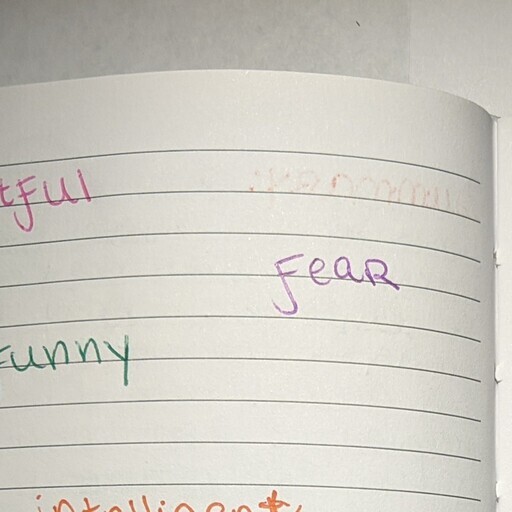 tful
Fear
Funny
intelligent